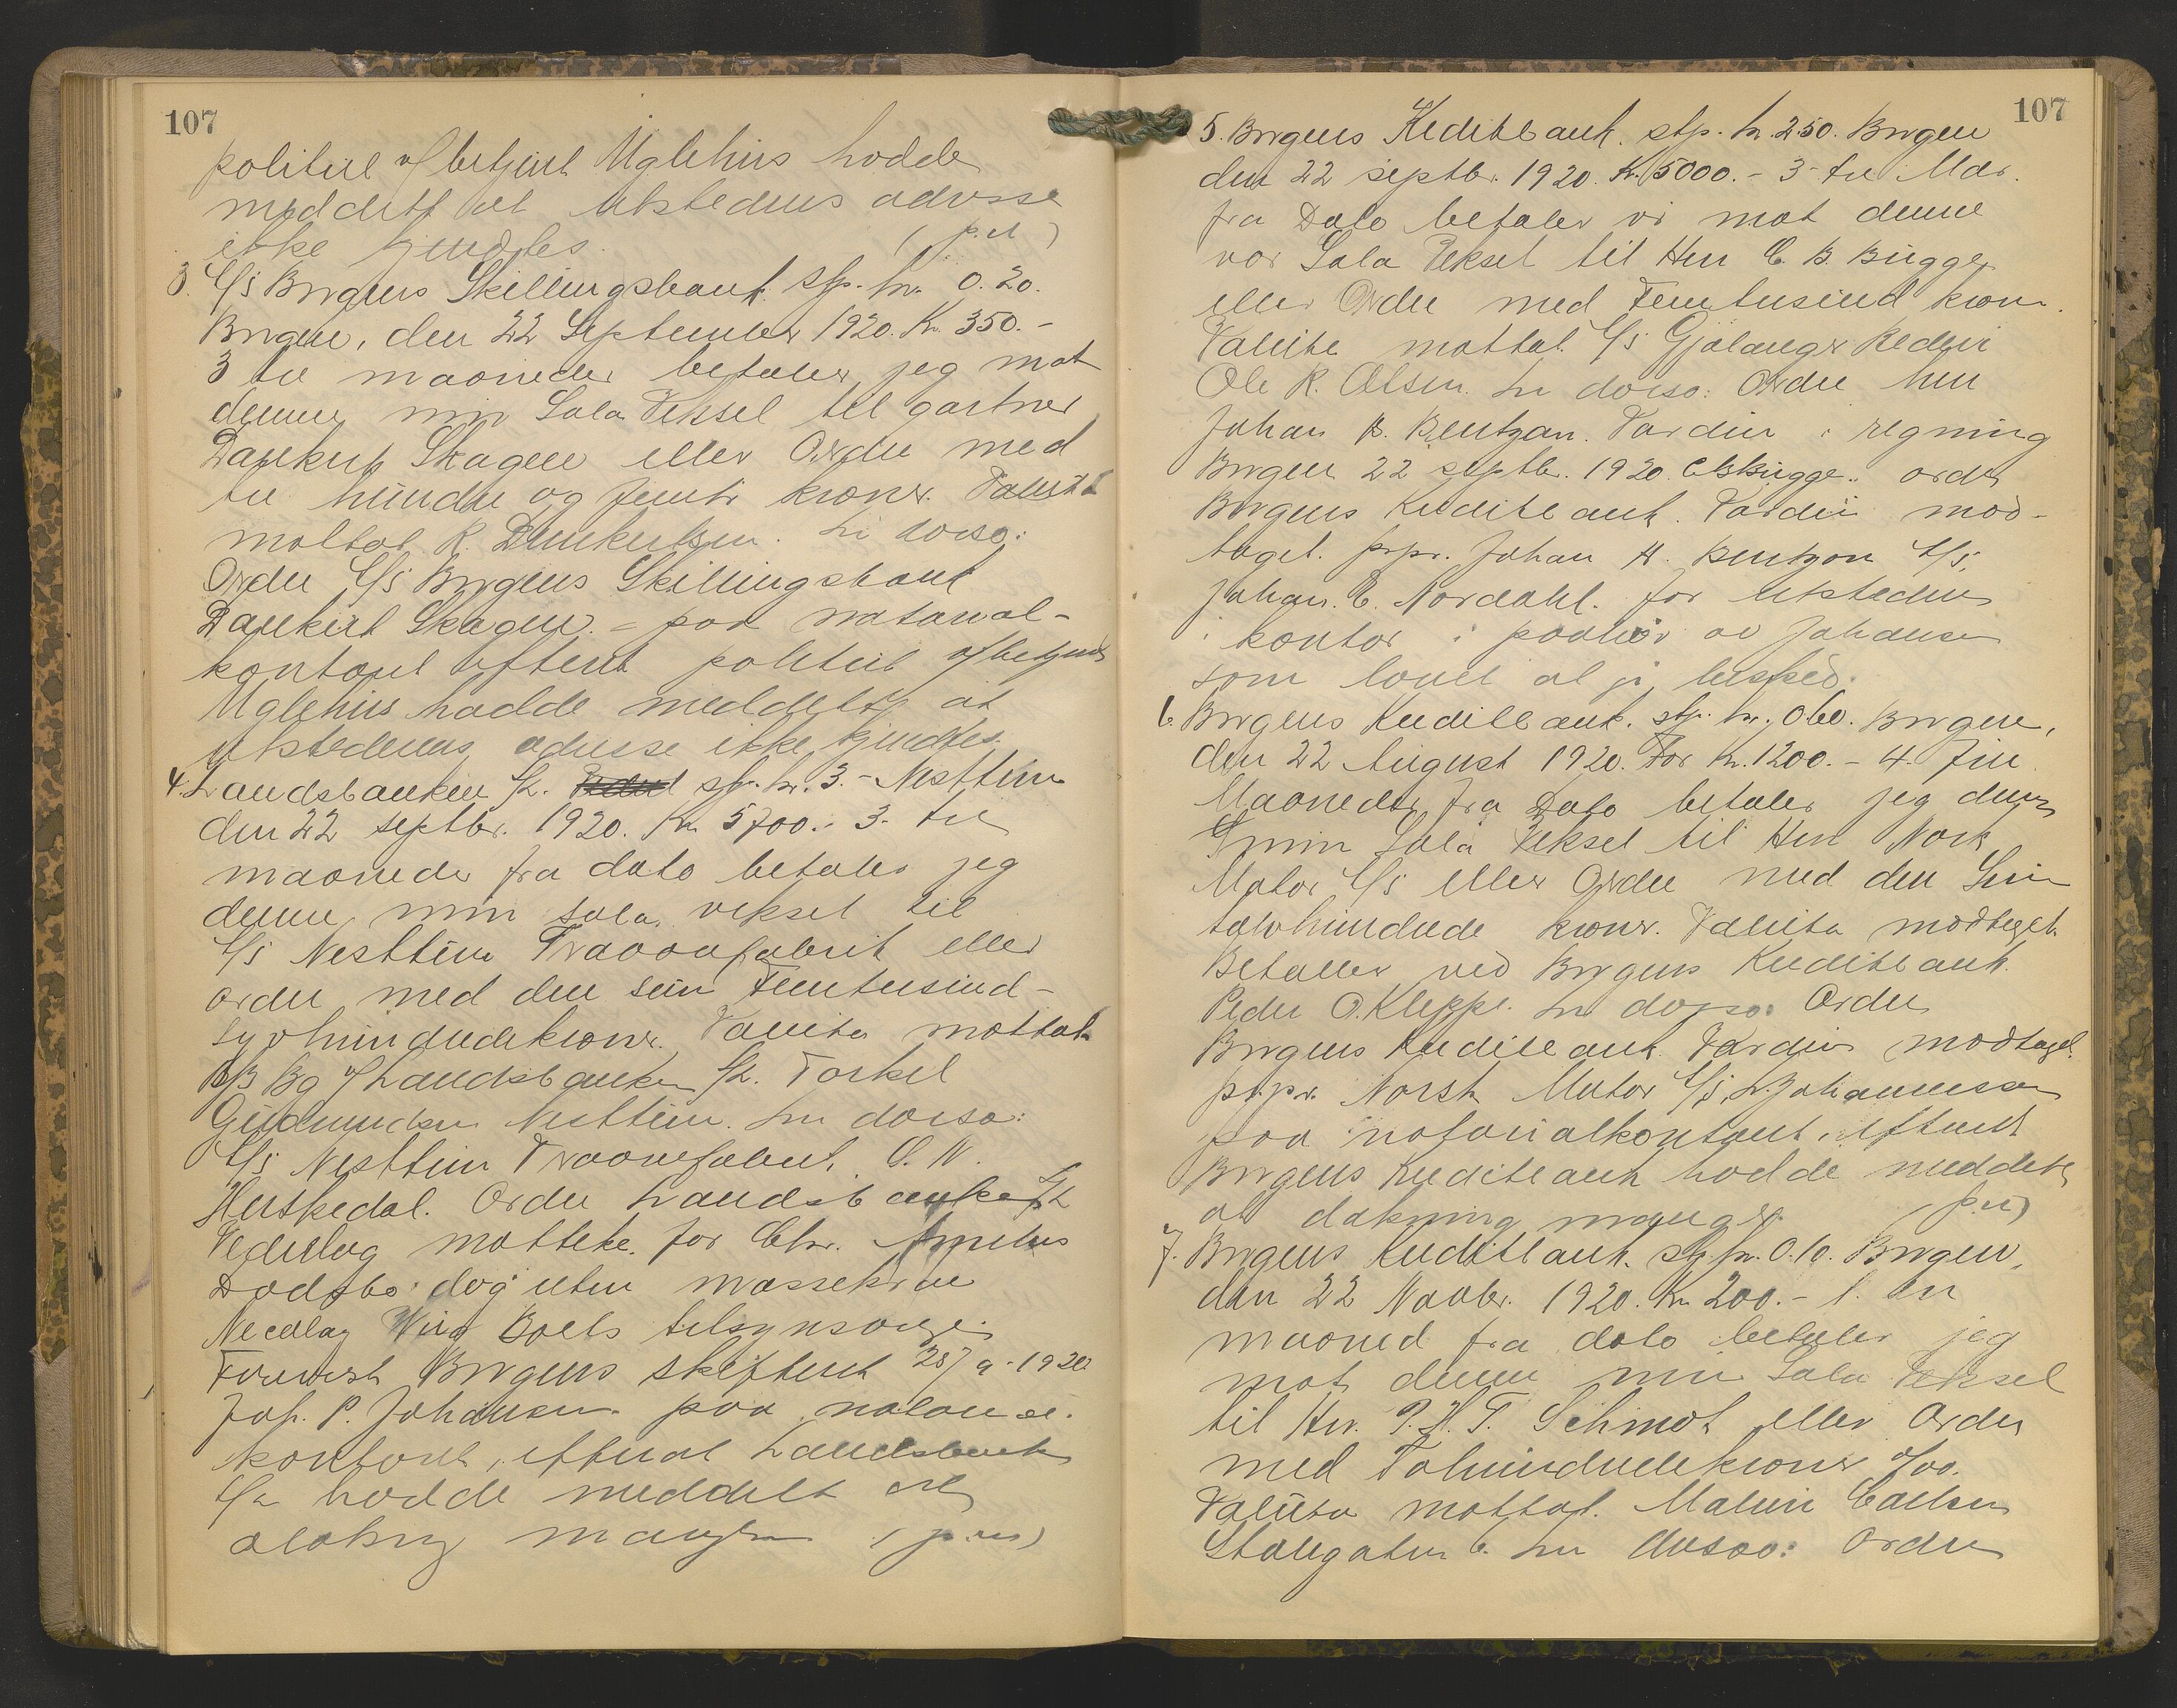 107
politiet v/ betjent Uglehus hadde
meddelt at utstederens adresse
ikke kjendtes. (p.n)
3. A/S Bergens Skillingsbank. stp. kr. 0.20.
Bergen, den 22 September 1920. Kr. 350.-
3 tre maaneder betaler jeg mot
denne min Sola Veksel til gartner
Dankert Skagen eller Ordre med
tre hundre og femti kroner. Valuta
mottat R. Dankertsen. In dorso:
Ordre A/S Bergens Skillingsbank
Dankert Skagen. - paa notarial-
kontoret efterat politiet v/ betjent
Uglehus hadde meddelt, at
utstederens adresse ikke kjendtes.
4. Landsbanken A/S. stp. kr. 3.- Nesttun
den 22 septbr. 1920. Kr. 5700.- 3- tre
maaneder fra dato betaler jeg
denne min sola veksel til
A/S Nesttun Traavarefabrik eller
ordre med den sum Femtusind-
syvhundredekroner. Valuta mottat.
B/B Bg v/ Landsbanken A/S. Torkel
Gudmundsen Nesttun. In dorso:
A/S Nesttun Traavarefabrik. O. N.
Herskedal. Ordre Landsbanken A/S
Vederlag mottat. for Chr.
Dødsbo: dog uten massekrav
Nicolay Boels tilsynsverge
Forevist Bergens skifteret 28/9-1920
Joh. P. Johansen. paa notarial-
kontoret, efterat Landsbanken
A/S hadde meddelt at
dækning mangler (p.n)
107
5. Bergens Kreditbank. stp. kr. 2.50. Bergen
den 22 septbr. 1920. Kr. 5000.- 3- tre Mdr.
fra Dato betaler vi mot denne
vor Sola Veksel til Herr C. B. Bugge
eller Ordre med Femtusind kroner.
Valuta mottat. A/S Gjølanger Rederi
Ole R. Olsen. In dorso: Ordre herr
Johan B. Bentzon. Værdien i regning
Bergen 22 septb. 1920. CBBugge.. ordre
Bergens Kreditbank. Værdien mod-
taget. prpr. Johan H. Bentzon A/S.
Johan. E. Nordahl. for utstederens
kontor i paahør av Johansen
som lovet at gi besked.
6. Bergens Kreditbank. stp. kr. 0.60. Bergen,
den 22 August 1920. For Kr. 1200.- 4. Fire
Maaneder fra Dato betaler jeg denne
min Sola Veksel til Herr Norsk
Motor A/S eller Ordre med den Sum
tolvhundrede kroner. Valuta modtaget.
Betales ved Bergens Kreditbank.
Peder O. Kleppe. In dorso: Ordre
Bergens Kreditbank. Værdien modtaget.
pr.pr. Norsk Motor A/S. L. Johannessen
paa notarialkontoret, efterat
Bergens Kreditbank hadde meddelt
at dækning mangler. (p.n)
7. Bergens Kreditbank. stp. kr. 0.10. Bergen,
den 22 Novbr. 1920. Kr. 200.- 1. En
maaned fra dato betaler jeg
mot denne min Sola Veksel
til Hr. P. H. T. Schmidt eller Ordre
med Tohundredekroner 0/00.
Valuta mottat. Malvin Carlsen
Stølegaten 6. In dorso: Ordre